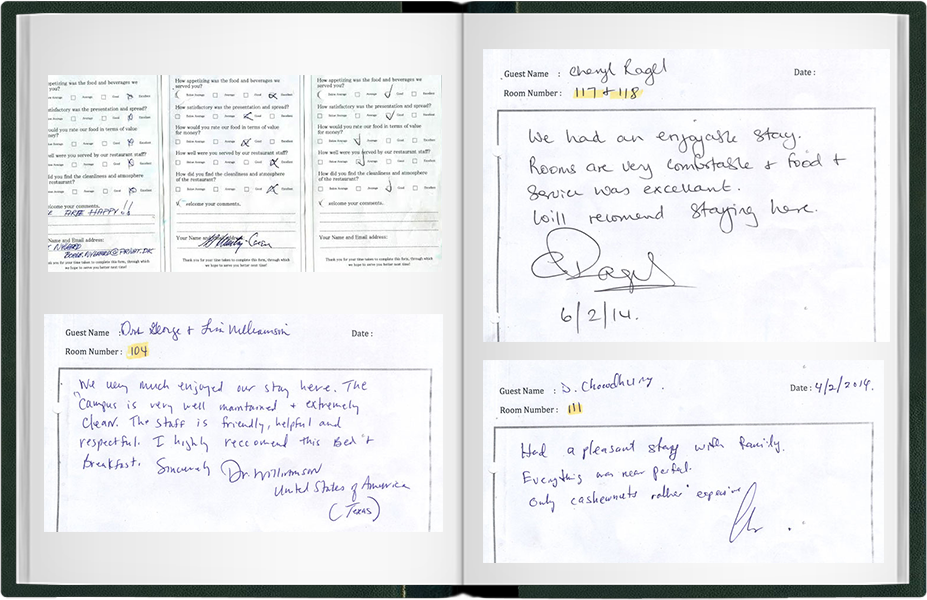 ppetizing was the food and beverages we
served you?
Average
Good
Excellent
satisfactory was the presentation and spread?
Average
Good
Excellent
would you rate our food in terms of value
money?
Average
Good
Excellent
well were you served by our restaurant staff?
Average
Good
Excellent
did you find the cleanliness and atmosphere
the restaurant?
Average
Good
Excellent
elcome your comments.
FREE HAPPY!!
Name and Email address:
@PRIVAT.DK
k you for your time taken to complete this form, through which
we hope to serve you better next time!
How appetizing was the food and beverages we
served you?
Below Average
Average
Good
Excellent
How satisfactory was the presentation and spread?
Below Average
Average
Good
Excellent
How would you rate our food in terms of value
for money?
Below Average
Average
Good
Excellent
How well were you served by our restaurant staff?
Below Average
Average
Good
Excellent
How did you find the cleanliness and atmosphere
of the restaurant?
Below Average
Average
Good
Excellent
elcome your comments.
Your Name and Email address:
Thank you for your time taken to complete this form, through which
we hope to serve you better next time!
How appetizing was the food and beverages we
served you?
Below Average
Average
Good
Excellent
How satisfactory was the presentation and spread?
Below Average
Average
Good
Excellent
How would you rate our food in terms of value
for money?
Below Average
Average
Good
Excellent
How well were you served by our restaurant staff?
Below Average
Average
Good
Excellent
How did you find the cleanliness and atmosphere
of the restaurant?
Below Average
Average
Good
Excellent
elcome your comments.
Your Name and Email address:
Thank you for your time taken to complete this form, through which
we hope to serve you better next time!
Guest Name : George + Williamson Date :
Room Number : 104
We very much enjoyed our stay here. The
Campus is very well maintained + extremely
Clean. The staff is friendly, helpful and
respectful. I highly reccomend this Bed +
Breakfast. Sincerely Dr. Williamson
United States of America
(Texas)
Guest Name : Cheryl Ragel Date :
Room Number : 117 + 118
We had an enjoyable stay.
Rooms are very comfortable + Food +
Service was excellant.
Will recomend staying here.
Ragel
6/2/14.
Guest Name : D. Chowdhury. Date : 4/2/2014.
Room Number : 111
Had a pleasant stay with family.
Everything was near perfect.
Only cashewnuts rather expensive